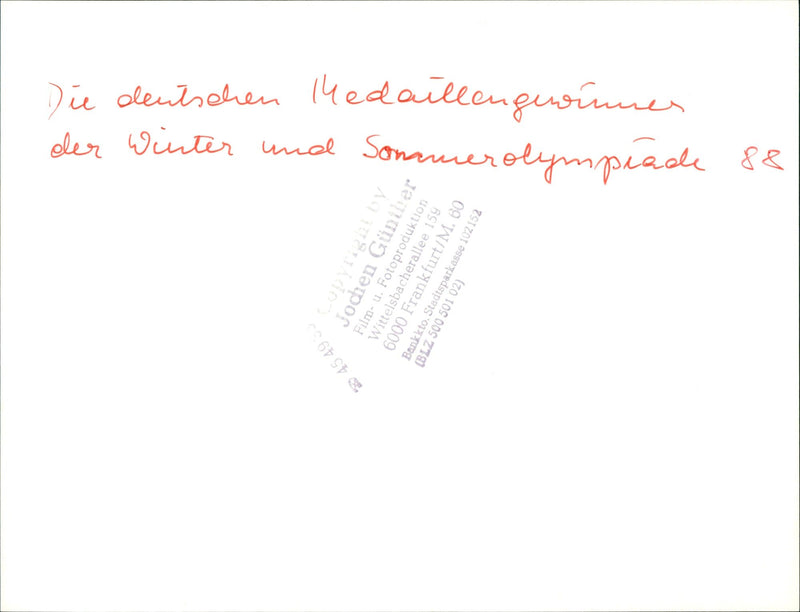 Die deutschen Medaillengewinner
der Winter und Sommerolympiade 88
Copyright by
Jochen Günther
Film- u. Fotoproduktion
Wittelsbacherallee 159
6000 Frankfurt/M. 60
Bankkto. Stadtsparkasse 102152
(BLZ 500 501 02)